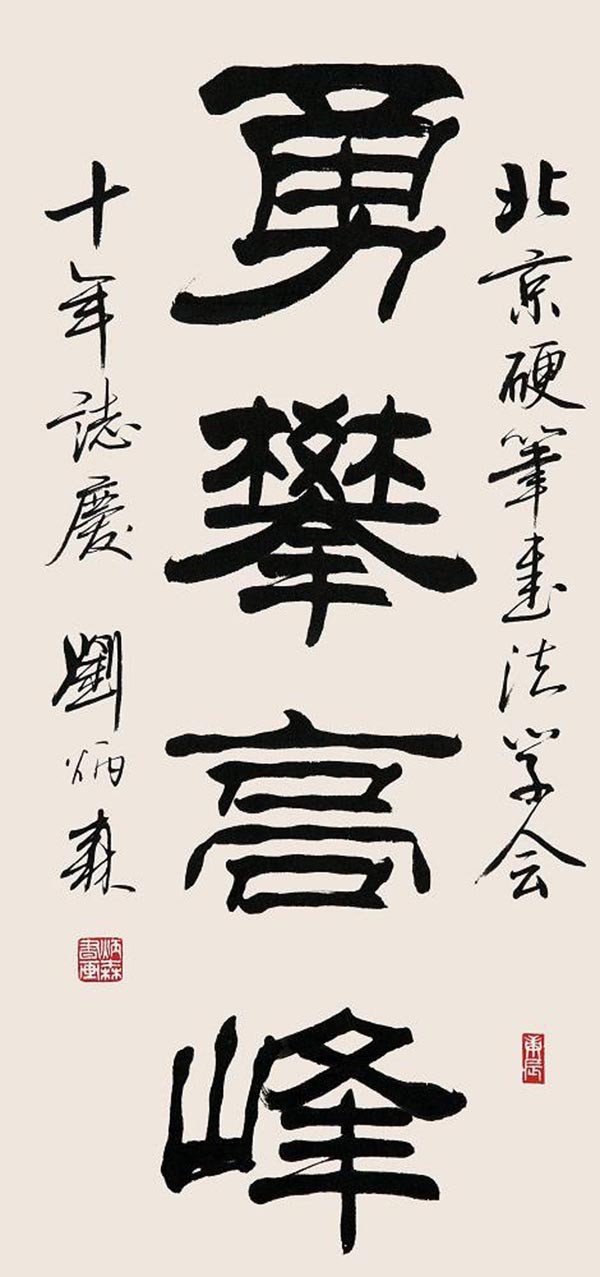 北京硬筆書法学会
庚辰
勇攀高峰
十年誌慶 劉炳森
炳森書画